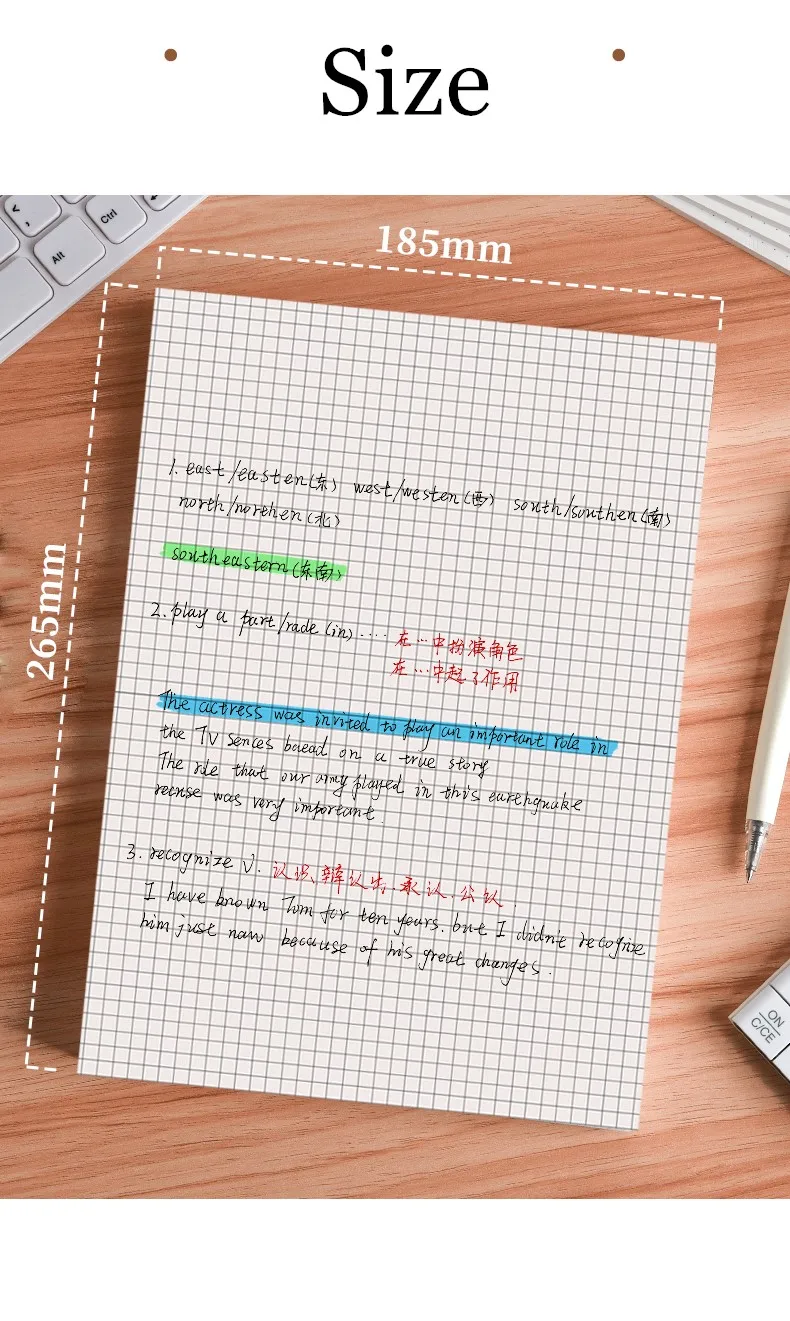 Size
185mm
265mm
< ,
Alt
Ctrl
1. east/easten(东) west/westen(西) south/southen(南)
north/northen(北)
southeastern(东南)
2. play a part/rade(in)....
在…中扮演角色
在…中起了作用
The actress was invited to play an important role in
the TV sences baead on a true story
The role that our army played in this earthquake
recnse was very important.
3. recognize v. 认识、辨认出、承认、公认.
I have known Tom for ten years. but I didn't recognize
him just now because of his great changes.
ON
C/CE